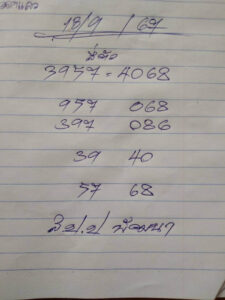 18/9/67
3957-4068
957 068
397 086
39 40
57 68
ส.ป.ป พัฒนา